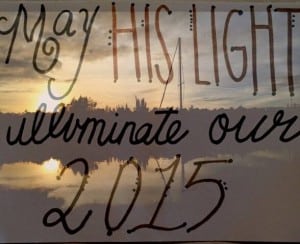 May HIS LIGHT
illuminate our
2015